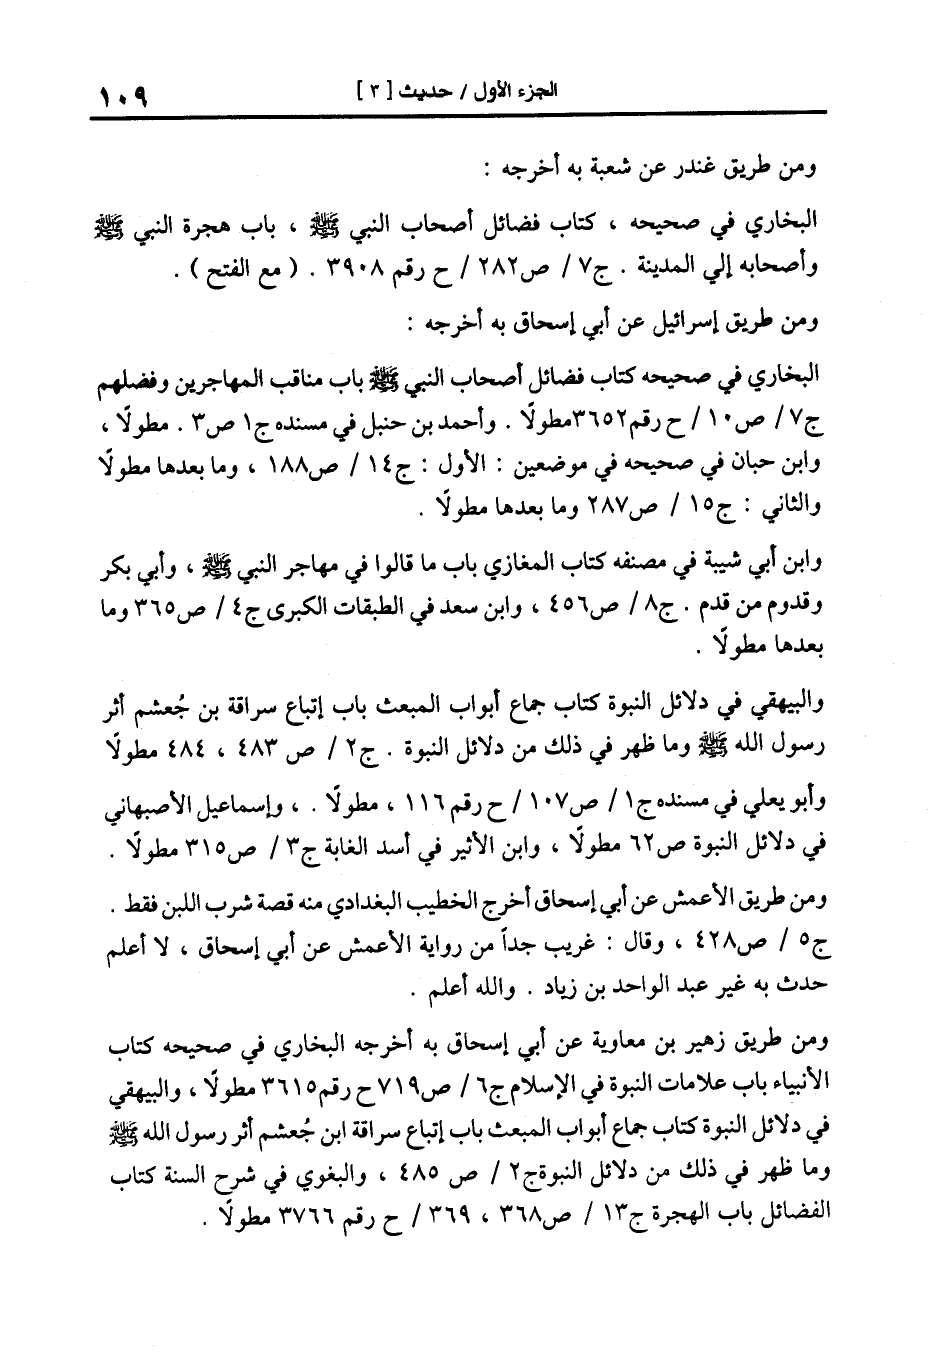 الجزء الأول / حديث [ ٣ ] ١٠٩
ومن طريق غندر عن شعبة به أخرجه :
البخاري في صحيحه ، كتاب فضائل أصحاب النبي ﷺ ، باب هجرة النبي ﷺ
وأصحابه إلي المدينة . ج٧ / ص٢٨٢ / ح رقم ٣٩٠٨ . ( مع الفتح ) .
ومن طريق إسرائيل عن أبي إسحاق به أخرجه :
البخاري في صحيحه كتاب فضائل أصحاب النبي ﷺ باب مناقب المهاجرين وفضلهم
ج٧ / ص١٠ / ح رقم٣٦٥٢مطولًا . وأحمد بن حنبل في مسنده ج١ ص٣ . مطولًا ،
وابن حبان في صحيحه في موضعين : الأول : ج١٤ / ص١٨٨ ، وما بعدها مطولًا
والثاني : ج١٥ / ص٢٨٧ وما بعدها مطولًا .
وابن أبي شيبة في مصنفه كتاب المغازي باب ما قالوا في مهاجر النبي ﷺ ، وأبي بكر
وقدوم من قدم . ج٨ / ص٤٥٦ ، وابن سعد في الطبقات الكبرى ج٤ / ص٣٦٥ وما
بعدها مطولًا .
والبيهقي في دلائل النبوة كتاب جماع أبواب المبعث باب إتباع سراقة بن جُعشم أثر
رسول الله ﷺ وما ظهر في ذلك من دلائل النبوة . ج٢ / ص ٤٨٣ ، ٤٨٤ مطولًا
وأبو يعلي في مسنده ج١ / ص١٠٧ / ح رقم ١١٦ ، مطولًا . ، وإسماعيل الأصبهاني
في دلائل النبوة ص٦٢ مطولًا ، وابن الأثير في أسد الغابة ج٣ / ص٣١٥ مطولًا .
ومن طريق الأعمش عن أبي إسحاق أخرج الخطيب البغدادي منه قصة شرب اللبن فقط .
ج٥ / ص٤٢٨ ، وقال : غريب جداً من رواية الأعمش عن أبي إسحاق ، لا أعلم
حدث به غير عبد الواحد بن زياد . والله أعلم .
ومن طريق زهير بن معاوية عن أبي إسحاق به أخرجه البخاري في صحيحه كتاب
الأنبياء باب علامات النبوة في الإسلام ج٦ / ص٧١٩ح رقم٣٦١٥ مطولًا ، والبيهقي
في دلائل النبوة كتاب جماع أبواب المبعث باب إتباع سراقة ابن جُعشم أثر رسول الله ﷺ
وما ظهر في ذلك من دلائل النبوةج٢ / ص ٤٨٥ ، والبغوي في شرح السنة كتاب
الفضائل باب الهجرة ج١٣ / ص٣٦٨ ، ٣٦٩ / ح رقم ٣٧٦٦ مطولًا .